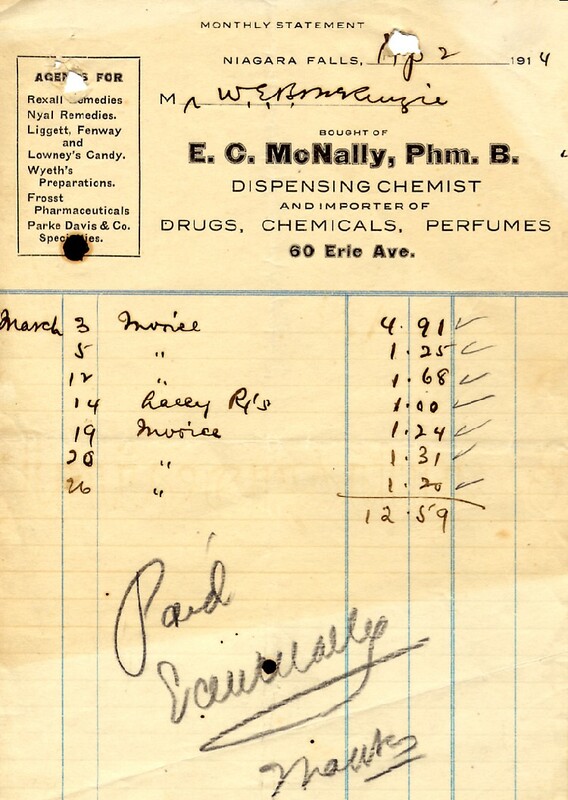 MONTHLY STATEMENT
NIAGARA FALLS, Ap 2 1914
M r W. E. B. McKenzie
BOUGHT OF
E. C. McNally, Phm. B.
DISPENSING CHEMIST
AND IMPORTER OF
DRUGS, CHEMICALS, PERFUMES
60 Erie Ave.
AGENTS FOR
Rexall Remedies
Nyal Remedies.
Liggett, Fenway
and
Lowney's Candy.
Wyeth's
Preparations.
Frosst
Pharmaceuticals
Parke Davis & Co.
Specialties.
March 3 Invoice 4.91
5 " 1.25
12 " 1.68
14 Rx's 1.00
19 Invoice 1.24
20 " 1.31
26 " 1.20
12.59
Paid
E C McNally
Thanks